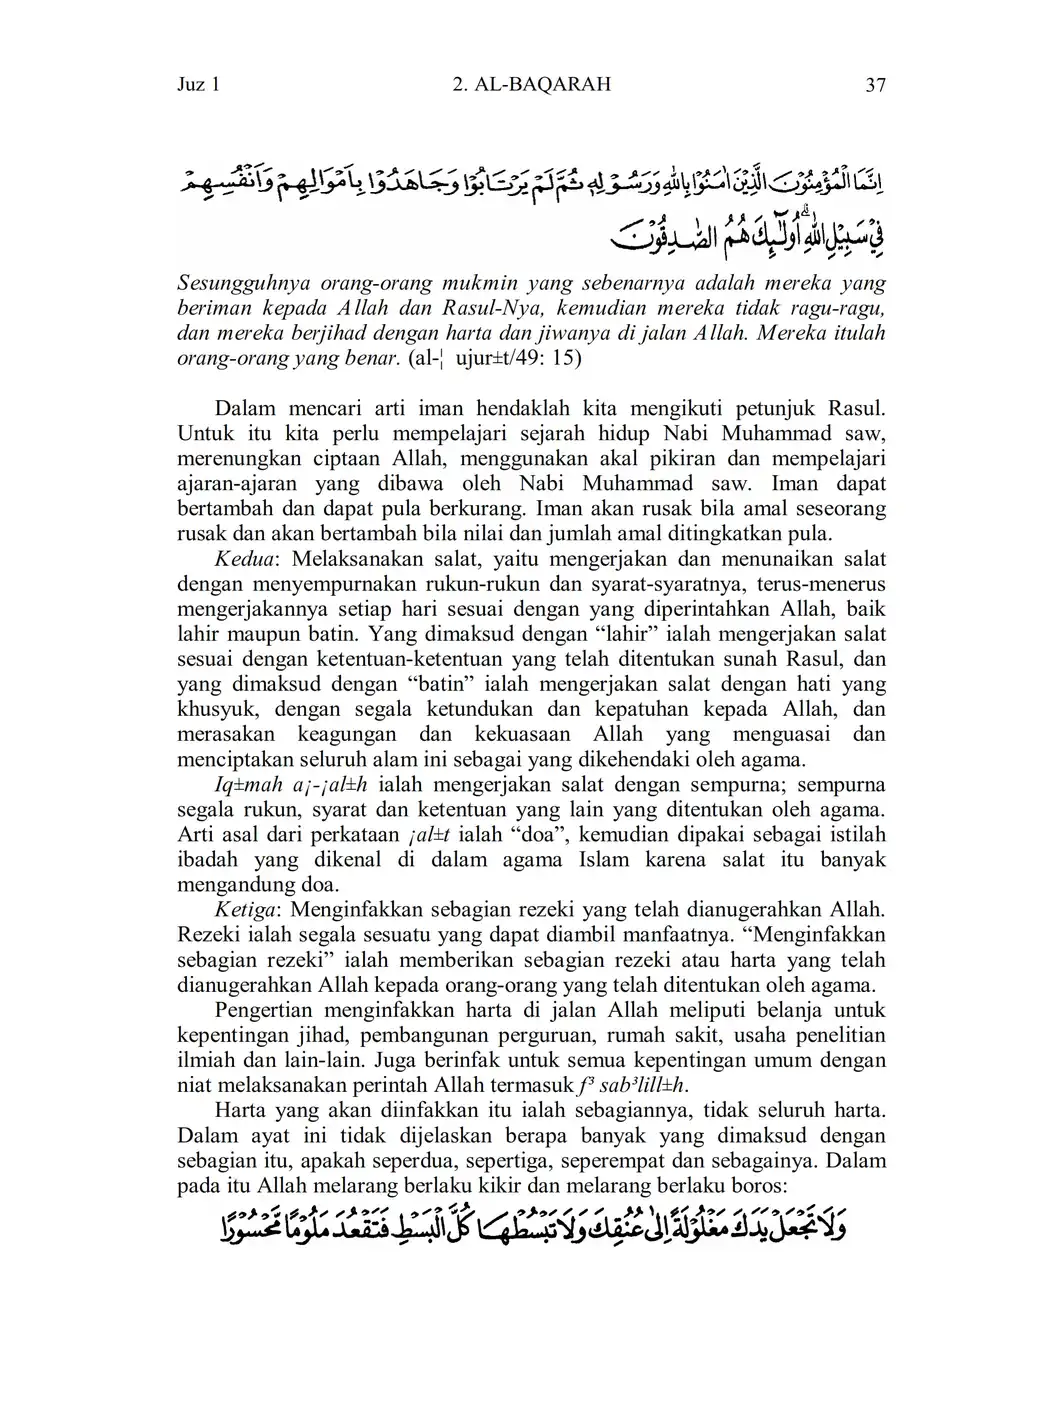 Juz 1 2. AL-BAQARAH 37
اِنَّمَا الْمُؤْمِنُوْنَ الَّذِيْنَ اٰمَنُوْا بِاللّٰهِ وَرَسُوْلِهٖ ثُمَّ لَمْ يَرْتَابُوْا وَجَاهَدُوْا بِاَمْوَالِهِمْ وَاَنْفُسِهِمْ
فِيْ سَبِيْلِ اللّٰهِ ۗ اُولٰۤىِٕكَ هُمُ الصّٰدِقُوْنَ
Sesungguhnya orang-orang mukmin yang sebenarnya adalah mereka yang
beriman kepada Allah dan Rasul-Nya, kemudian mereka tidak ragu-ragu,
dan mereka berjihad dengan harta dan jiwanya di jalan Allah. Mereka itulah
orang-orang yang benar. (al-¦ ujur±t/49: 15)
Dalam mencari arti iman hendaklah kita mengikuti petunjuk Rasul.
Untuk itu kita perlu mempelajari sejarah hidup Nabi Muhammad saw,
merenungkan ciptaan Allah, menggunakan akal pikiran dan mempelajari
ajaran-ajaran yang dibawa oleh Nabi Muhammad saw. Iman dapat
bertambah dan dapat pula berkurang. Iman akan rusak bila amal seseorang
rusak dan akan bertambah bila nilai dan jumlah amal ditingkatkan pula.
Kedua: Melaksanakan salat, yaitu mengerjakan dan menunaikan salat
dengan menyempurnakan rukun-rukun dan syarat-syaratnya, terus-menerus
mengerjakannya setiap hari sesuai dengan yang diperintahkan Allah, baik
lahir maupun batin. Yang dimaksud dengan “lahir” ialah mengerjakan salat
sesuai dengan ketentuan-ketentuan yang telah ditentukan sunah Rasul, dan
yang dimaksud dengan “batin” ialah mengerjakan salat dengan hati yang
khusyuk, dengan segala ketundukan dan kepatuhan kepada Allah, dan
merasakan keagungan dan kekuasaan Allah yang menguasai dan
menciptakan seluruh alam ini sebagai yang dikehendaki oleh agama.
Iq±mah a¡-¡al±h ialah mengerjakan salat dengan sempurna; sempurna
segala rukun, syarat dan ketentuan yang lain yang ditentukan oleh agama.
Arti asal dari perkataan ¡al±t ialah “doa”, kemudian dipakai sebagai istilah
ibadah yang dikenal di dalam agama Islam karena salat itu banyak
mengandung doa.
Ketiga: Menginfakkan sebagian rezeki yang telah dianugerahkan Allah.
Rezeki ialah segala sesuatu yang dapat diambil manfaatnya. “Menginfakkan
sebagian rezeki” ialah memberikan sebagian rezeki atau harta yang telah
dianugerahkan Allah kepada orang-orang yang telah ditentukan oleh agama.
Pengertian menginfakkan harta di jalan Allah meliputi belanja untuk
kepentingan jihad, pembangunan perguruan, rumah sakit, usaha penelitian
ilmiah dan lain-lain. Juga berinfak untuk semua kepentingan umum dengan
niat melaksanakan perintah Allah termasuk f³ sab³lill±h.
Harta yang akan diinfakkan itu ialah sebagiannya, tidak seluruh harta.
Dalam ayat ini tidak dijelaskan berapa banyak yang dimaksud dengan
sebagian itu, apakah seperdua, sepertiga, seperempat dan sebagainya. Dalam
pada itu Allah melarang berlaku kikir dan melarang berlaku boros:
وَلَا تَجْعَلْ يَدَكَ مَغْلُوْلَةً اِلٰى عُنُقِكَ وَلَا تَبْسُطْهَا كُلَّ الْبَسْطِ فَتَقْعُدَ مَلُوْمًا مَّحْسُوْرًا